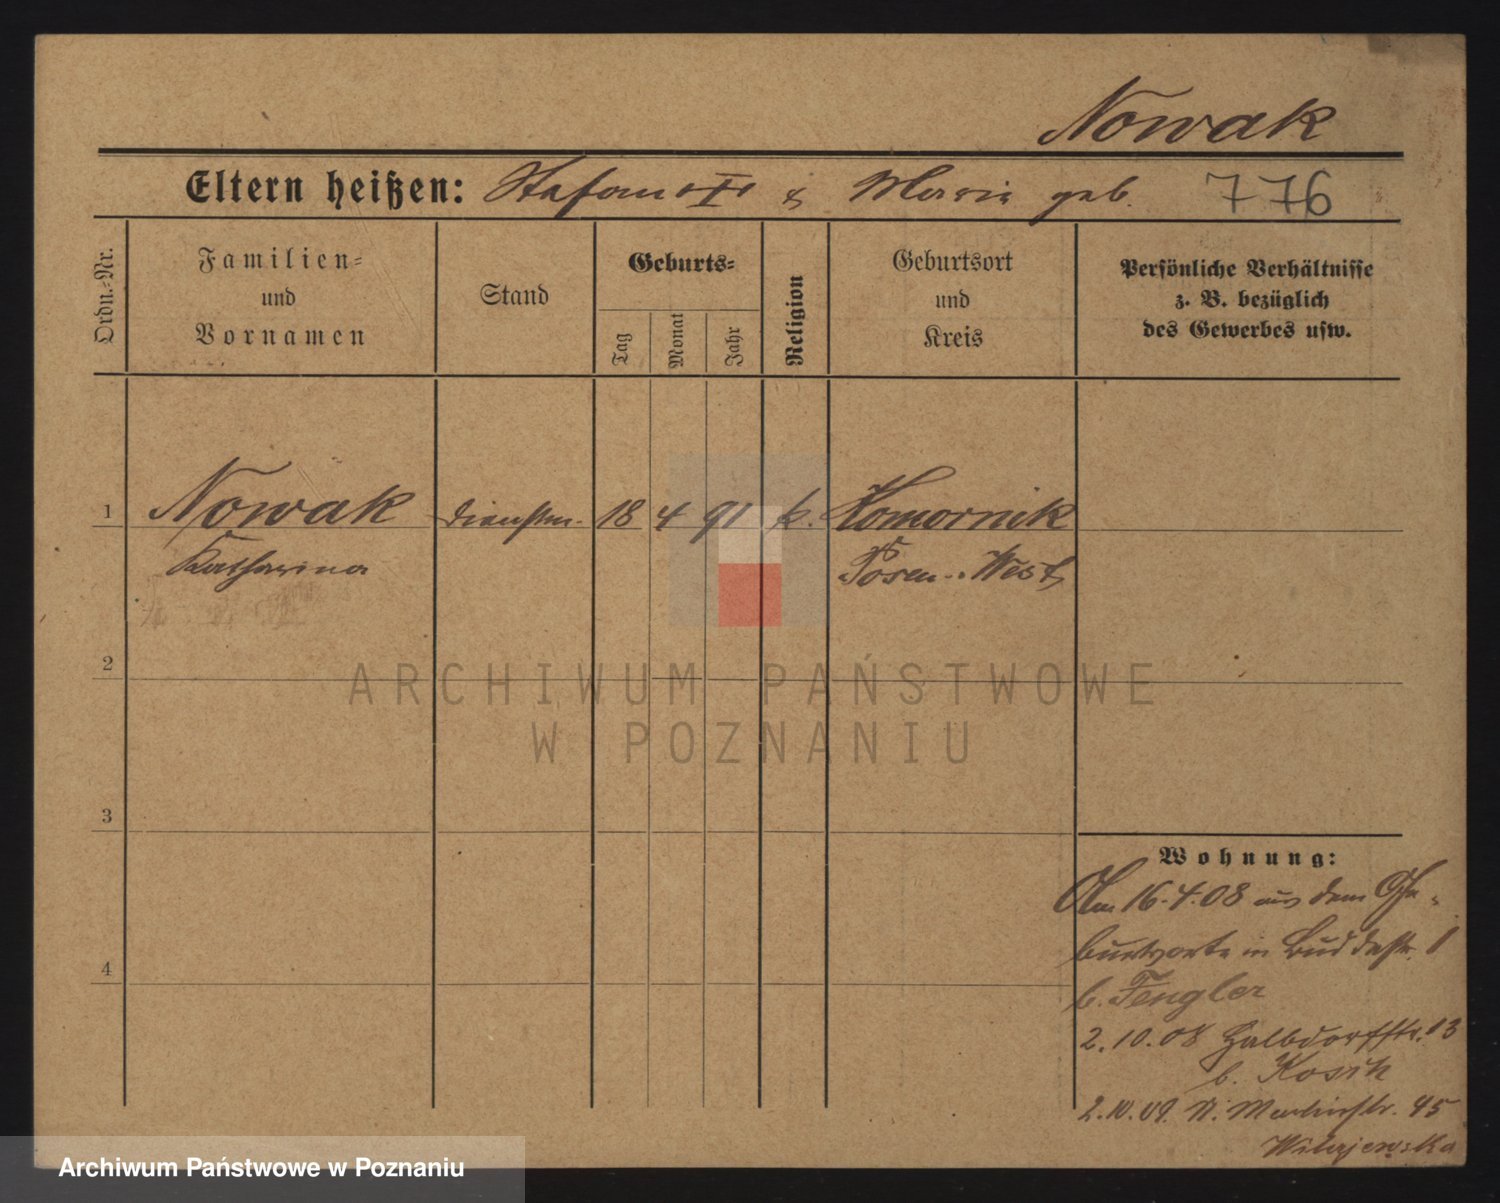 Nowak
Eltern heißen: & Marie geb. 776
Ordn.-Nr.
Familien-
und
Vornamen
Stand
Geburts-
Tag
Monat
Jahr
Religion
Geburtsort
und
Kreis
Persönliche Verhältnisse
z. B. bezüglich
des Gewerbes usw.
1 Nowak 18 4 91 k. Komornik
Katharina Posen-West
2
3
4
ARCHIWUM PAŃSTWOWE
W POZNANIU
Wohnung:
Am 16.4.08 aus dem Ge-
burtsorte in Buddestr. 1
b. Fengler
2.10.08 Halbdorfstr. 13
b. Kosik
2.10.09. St. Martinstr. 45
Archiwum Państwowe w Poznaniu